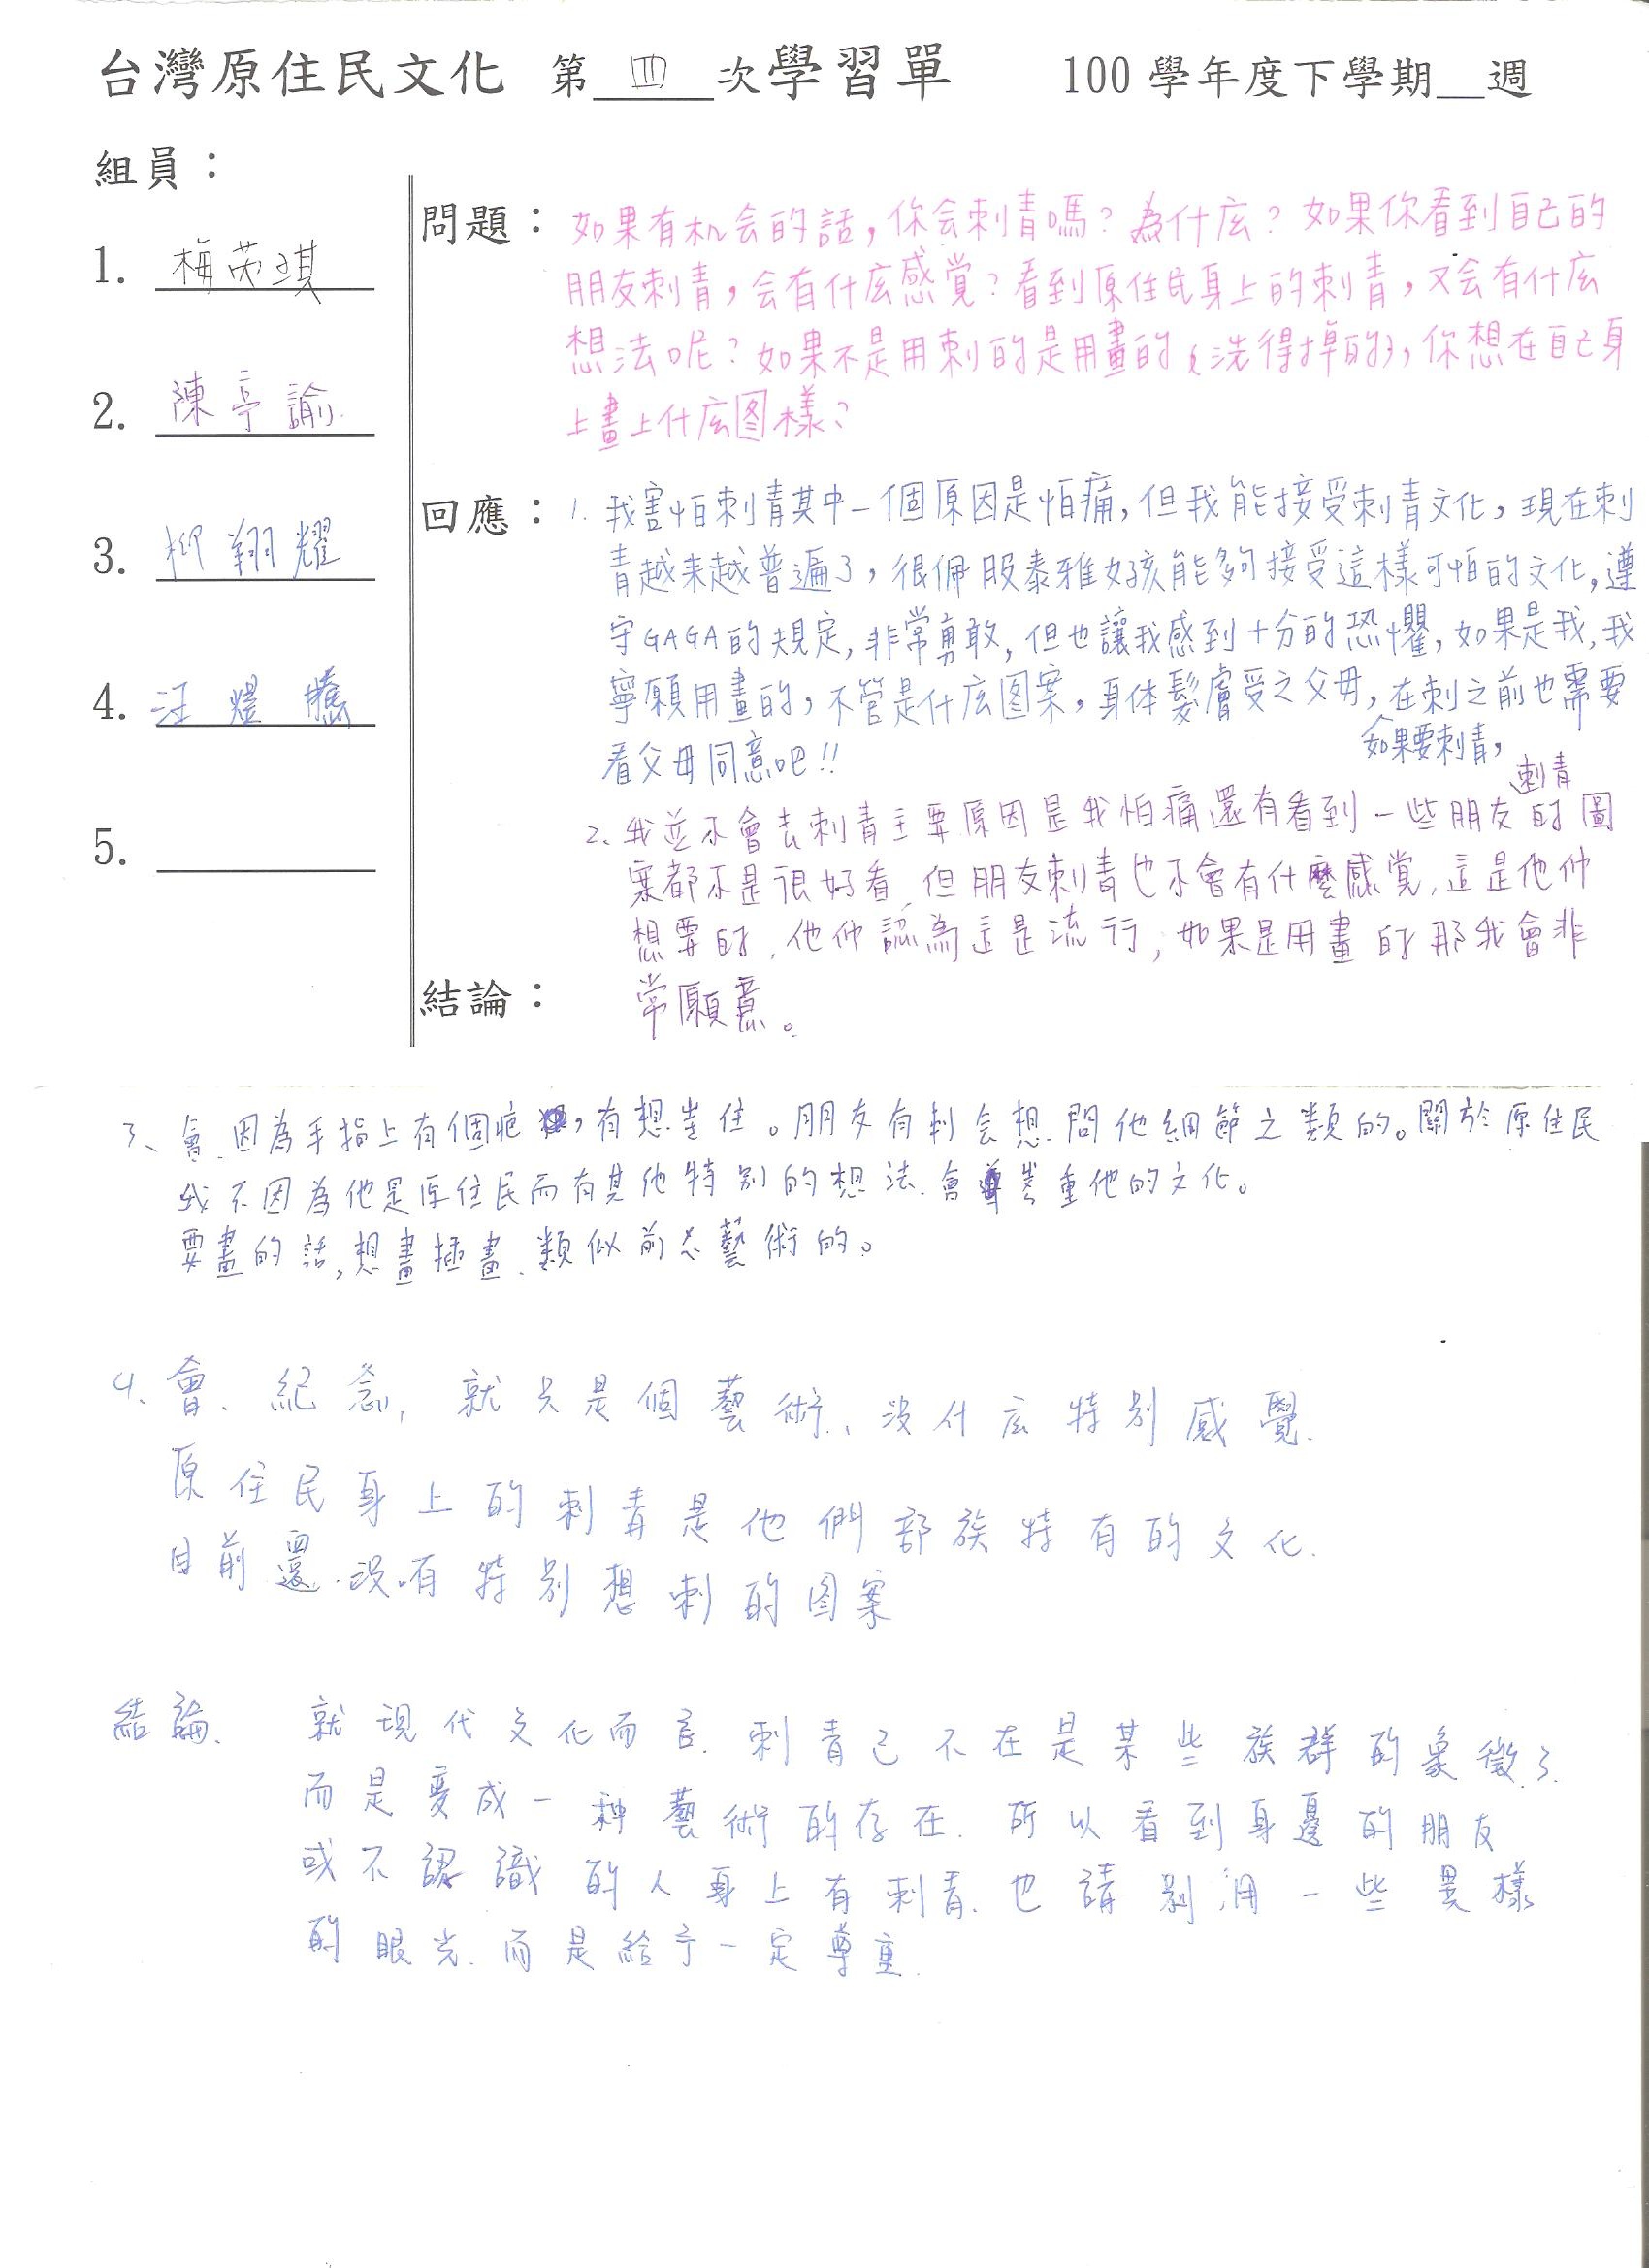 台灣原住民文化 第 四 次學習單 100 學年度下學期__週
組員：
1. 梅英琪
2. 陳亭諭
3. 柳翔耀
4. 汪煜騰
5.
問題：如果有机会的話，你会刺青嗎？為什庅？如果你看到自己的
朋友刺青，会有什庅感覚？看到原住民身上的刺青，又会有什庅
想法呢？如果不是用刺的是用畫的(洗得掉的)，你想在自己身
上畫上什庅图樣？
回應：1. 我害怕刺青其中一個原因是怕痛，但我能接受刺青文化，現在刺
青越来越普遍了，很佩服泰雅女孩能夠接受這樣可怕的文化，遵
守GAGA的規定，非常勇敢，但也讓我感到十分的恐懼，如果是我，我
寧願用畫的，不管是什庅图案，身体髮膚受之父母，如果要刺青，在刺之前也需要
看父母同意吧!!
2、我並不會去刺青主要原因是我怕痛還有看到一些朋友刺青的圖
案都不是很好看，但朋友刺青也不會有什麼感覚，這是他们
想要的，他们認為這是流行，如果是用畫的那我會非
常願意。
結論：
3、會、因為手指上有個疤，有想遮住。朋友有刺会想問他細節之類的。關於原住民
我不因為他是原住民而有其他特別的想法、會尊重他的文化。
要畫的話，想畫插畫、類似前衛藝術的。
4、會、紀念，就只是個藝術、沒什庅特別感覺.
原住民身上的刺青是他們部族特有的文化.
目前還沒有特別想刺的图案
結論、就現代文化而言.刺青已不在是某些族群的象徵了.
而是變成一种藝術的存在.所以看到身邊的朋友
或不認識的人身上有刺青.也請別用一些異樣
的眼光.而是給予一定尊重.